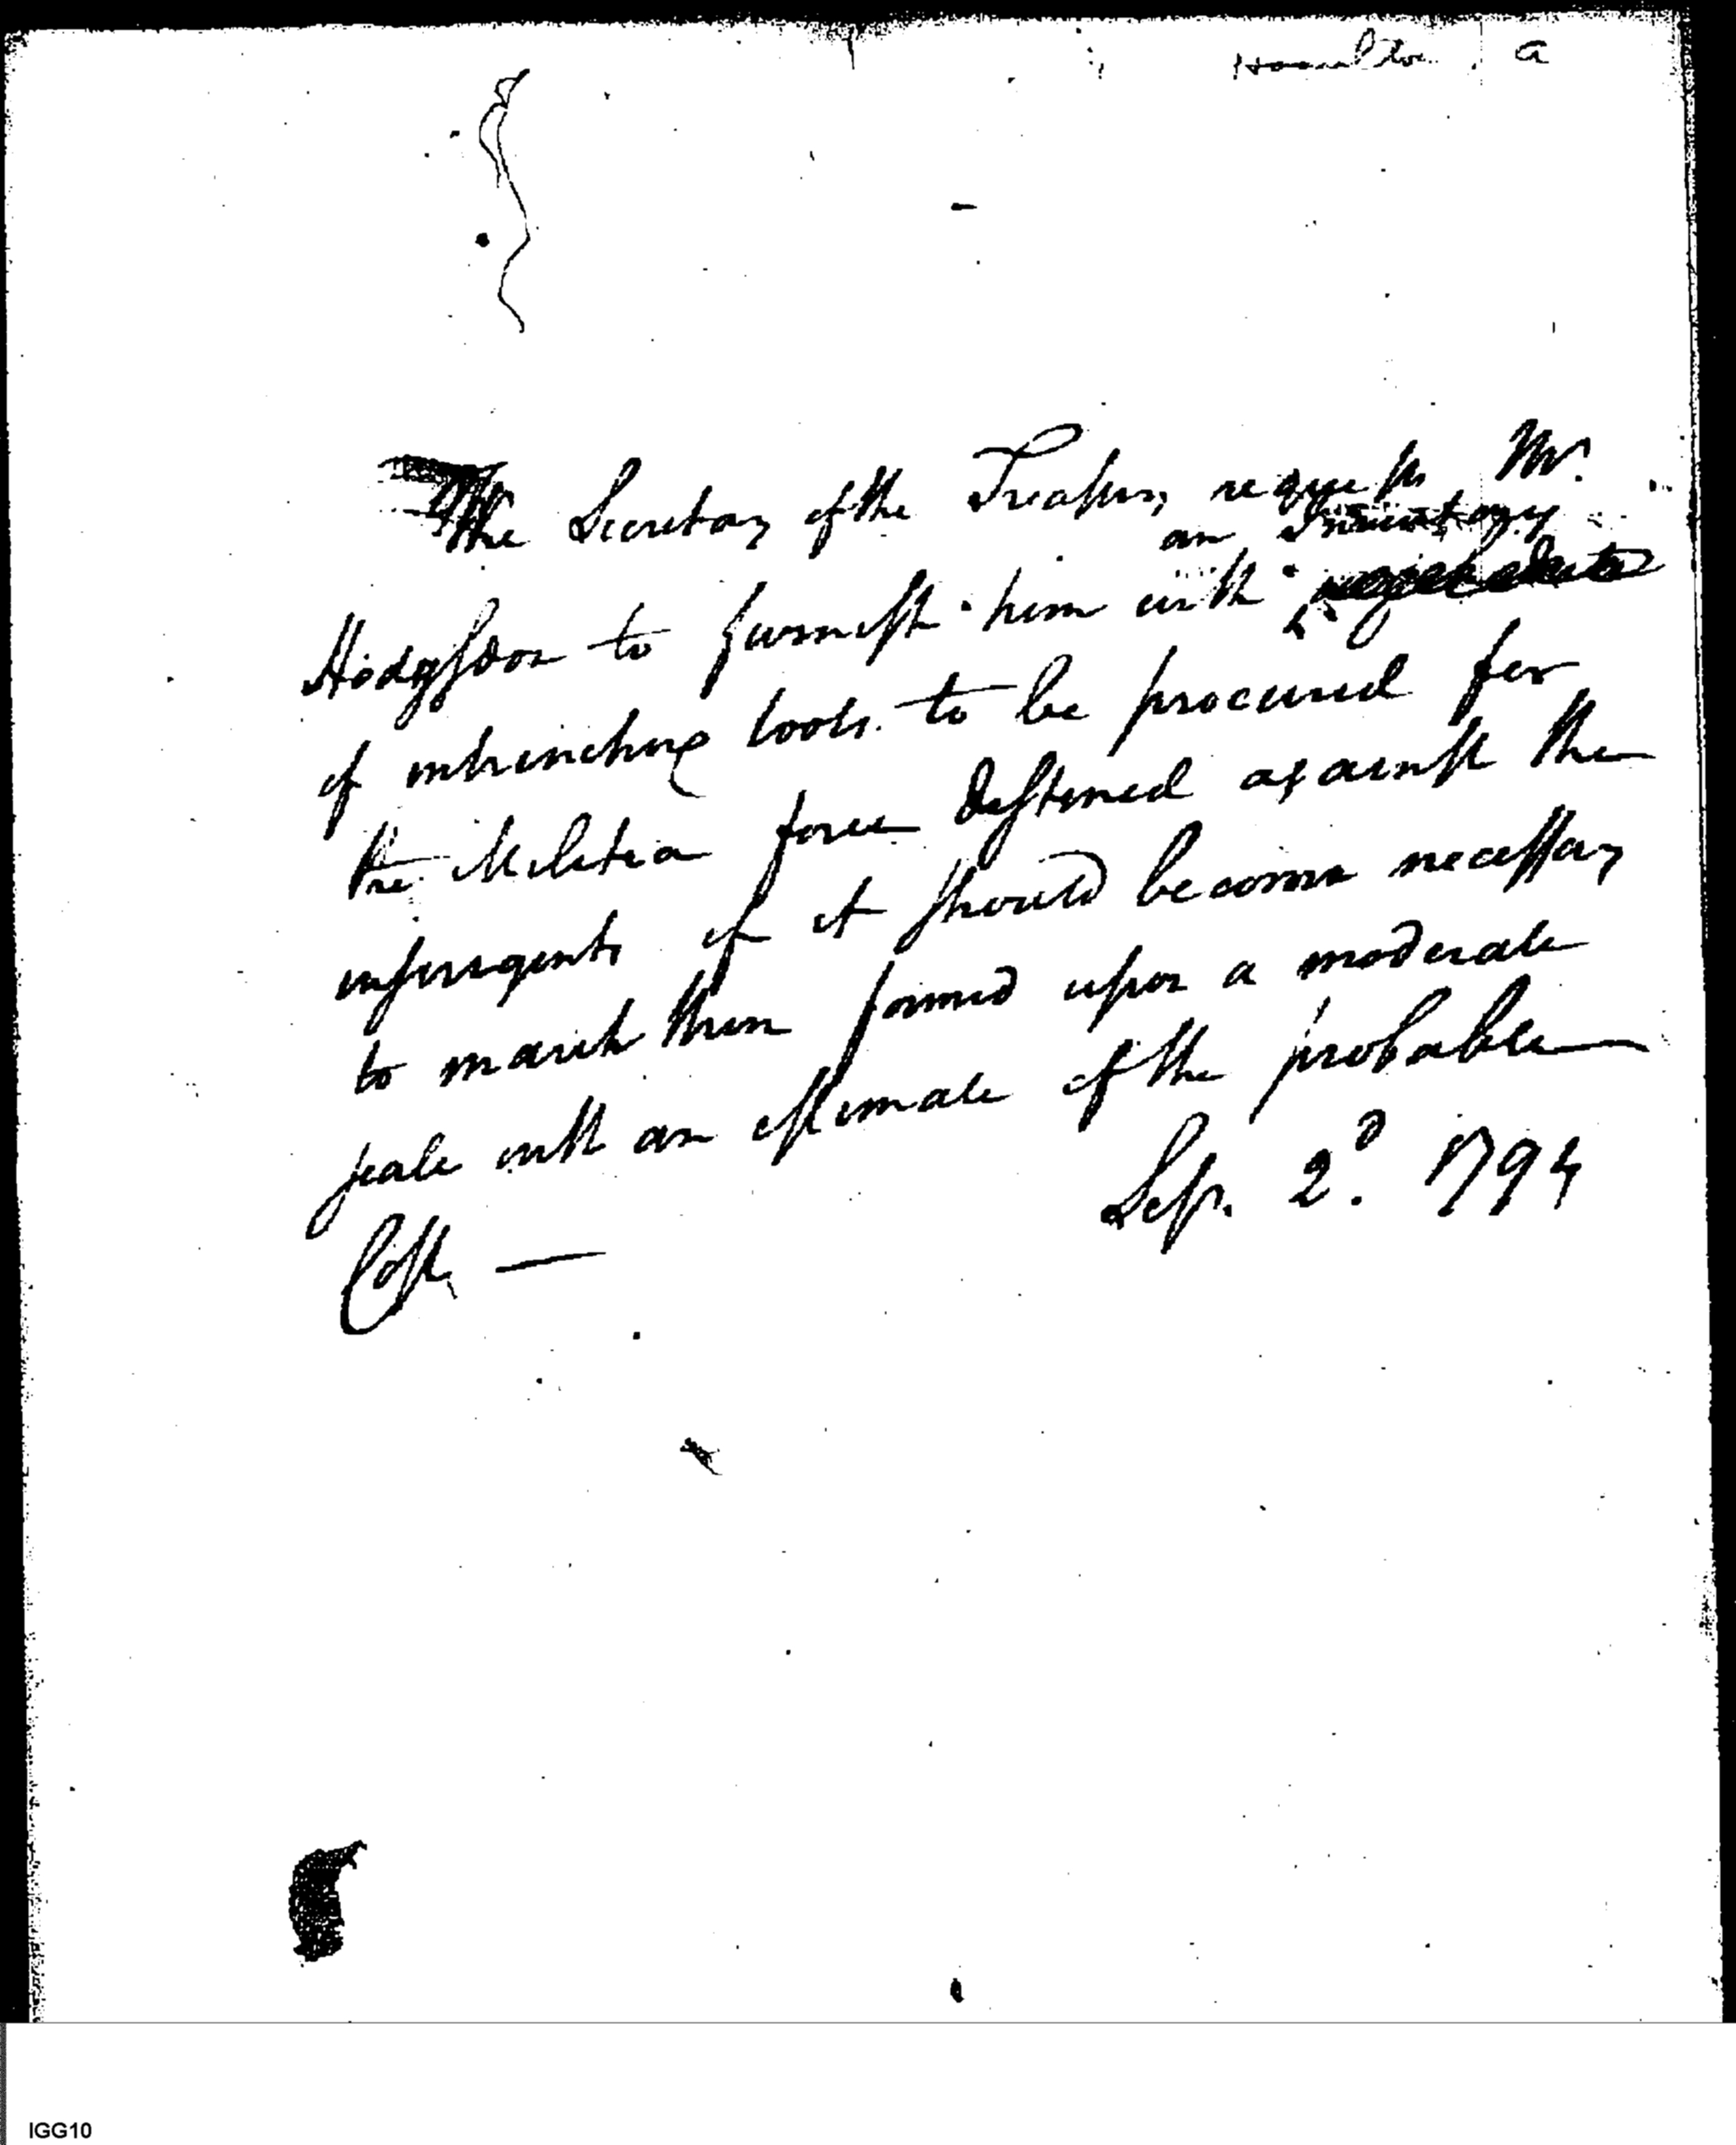 Hamilton, A
The Secretary of the Treasury requests Mr.
an Inventory
Hodgsdon to furnish him with
of intrenching tools to be procured for
the Militia force destined against the
insurgents if it should become necessary
to march them formed upon a moderate
scale with an estimate of the probable
Cost —
Sep. 2d. 1794
IGG10